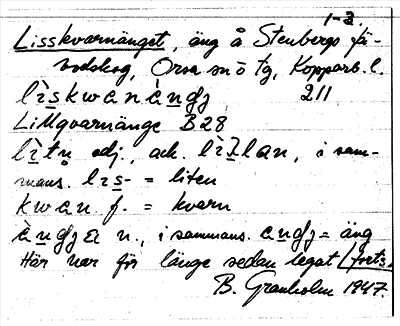 1-2.
Lisskvarnänget, äng å Stenbergs fä-
bodskog, Orsa sn ö tg, Kopparb. l.
lɪ̀skwanàṇdʒ 211
Lillqvarnänge B28
lɪ̀tn adj., ack. lɪ̀ƚlan, i sam-
mans. lɪs- = liten
kwan f. = kvarn
àṇdʒɛ n., i sammans. aṇdʒ = äng
Här var för länge sedan legat (forts.
B. Granholm 1947.